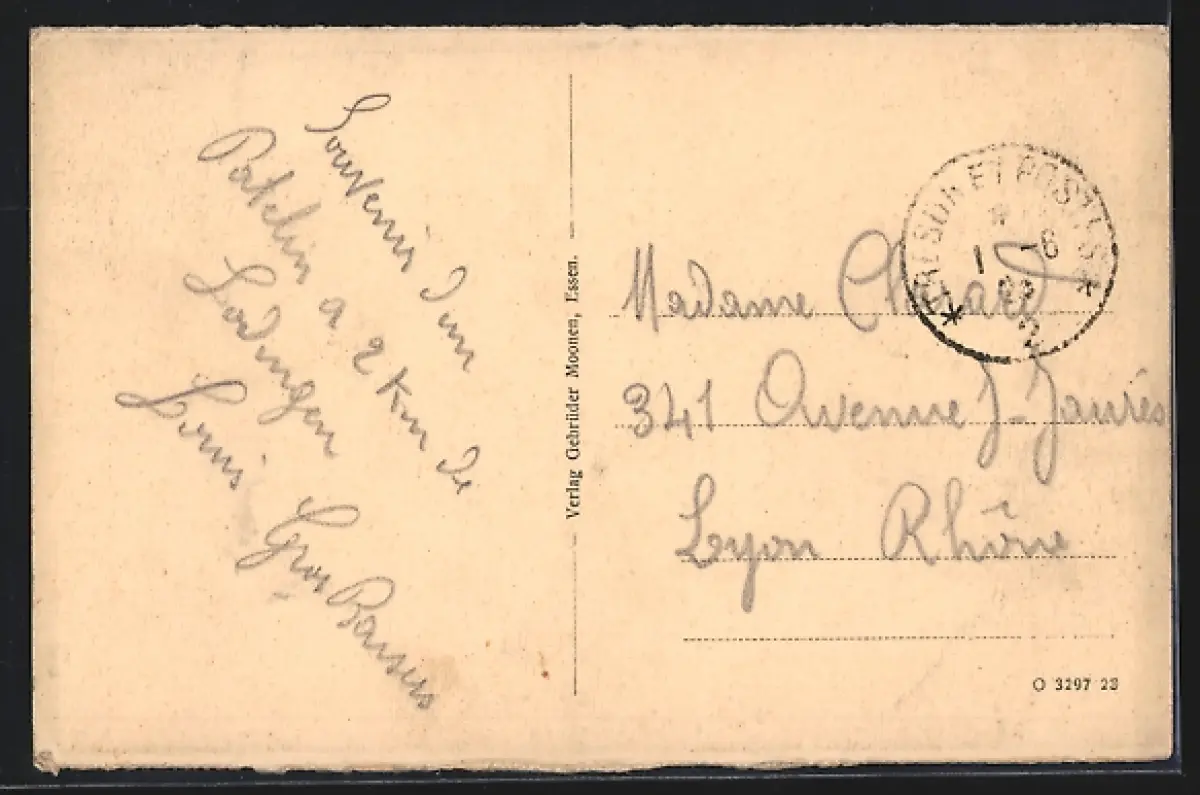 Souvenir d'un
Patelin a 2 Km de
Sodingen
Louis Gros Baisers
Verlag Gebrüder Moonen, Essen.
TRESOR ET POSTES
1 -6
23
Madame
341 Avenue J-Jaurès
Lyon Rhône
O 3297 23